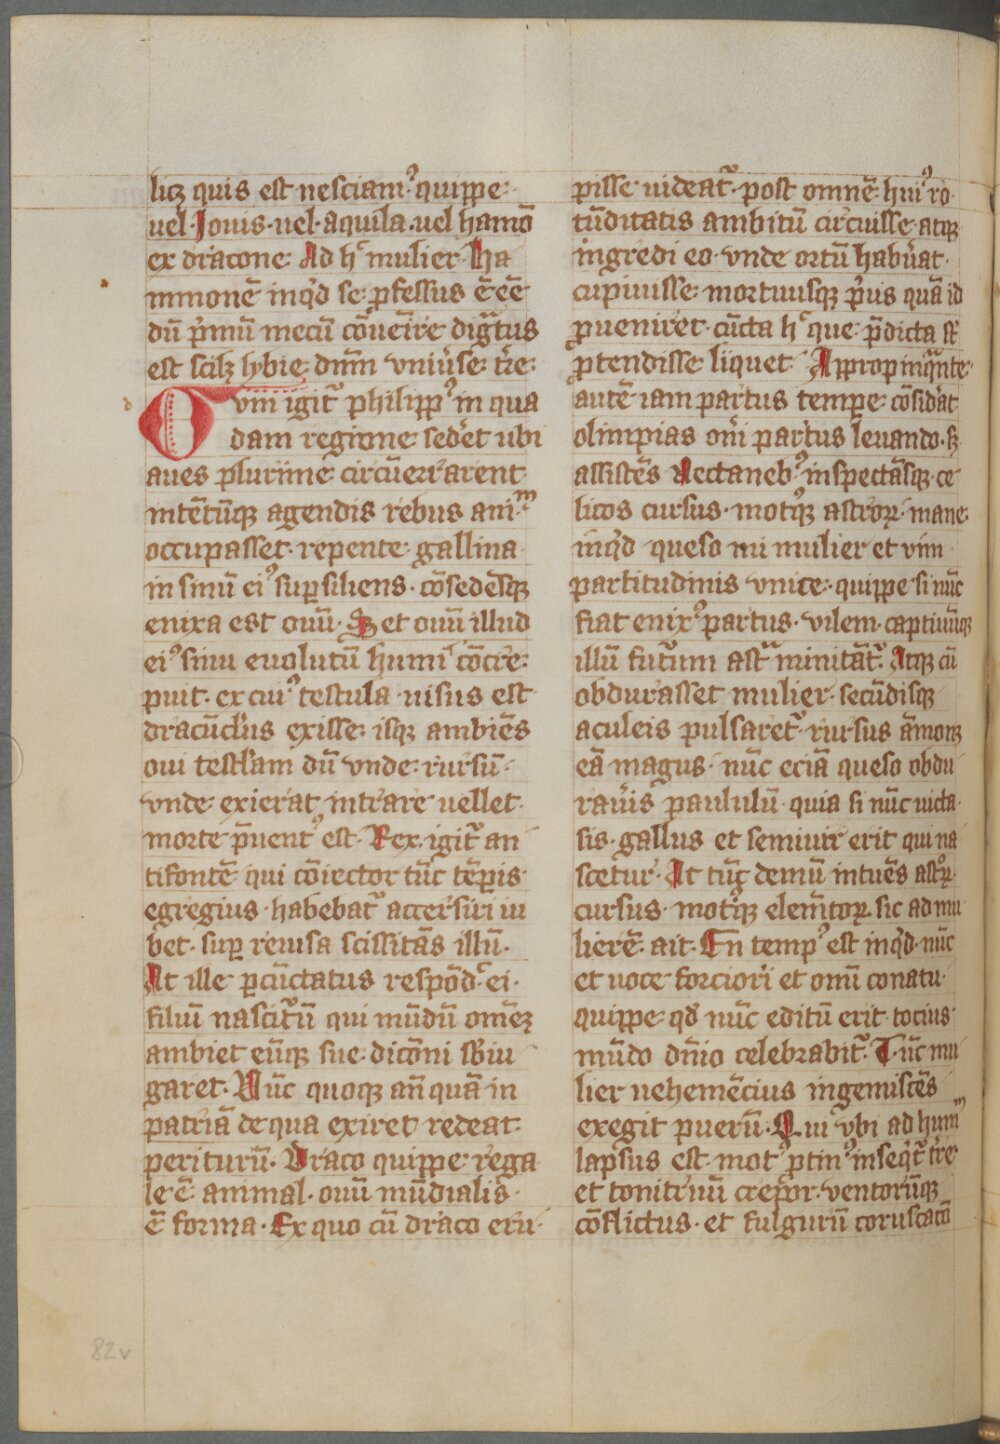 licꝫ quis est nesciam᷒ quippe
uel Jouis uel aquila uel hamō
ex dracone Ad hͨ mulier Ha
mmonē inqͥd se ꝓfessus ē eē
dū pͥmū mecū cōueīre digᷓtus
est scilꝫ lybie dn̄m vniu͛se tr̄e
Cvm igit᷑ philipp᷒ in qua
dam regione sed͛et ubi
aues plurime circūerrarent
intētūqꝫ agendis rebus ani᷒ᵐ
occupasset repente gallina
in sinū ei᷒ suꝑsiliens cōsedēsqꝫ
enixa est ouū Sꝫ et ouū illud
ei᷒ sinu euolutū humi cōcre
puit ex cui᷒ testula uisus est
dracūcl̓us exisse isqꝫ ambiēs
oui testl̓am dū vnde rursū
vnde exierat intrare uellet
morte p̄uent᷒ est Rex igit᷑ an
tifontē qui cōiector tūc tēꝑis
egregius habebat᷑ accersiri iu
bet suꝑ reiusa scissitās illū
At ille ꝑcūctatus respōd͛ ei
filiū nascit᷑ū qui mūdū omēꝫ
ambiet eūqꝫ sue dicōni sb̓iu
garet Nūc quoqꝫ an̄ quā in
patriā de qua exiret redeat
periturū Draco quippe rega
le ē animal ouū mūdialis
ē forma Ex quo cū draco eru
pisse uideat᷑ post omnē hui᷒ ro
tūditatis ambitū circuisse atqꝫ
ingredi eo vnde ortū habu͛at
cupiuisse mortuusqꝫ pͥus quā id
ꝑueniret cūcta hͨ que p̄dicta st̄
ꝓtendisse liquet Appropinqᷓnte
autē iam partus tempe cōsid͛at
olimpias on̓i partus leuando sꝫ
assistēs Nectaneb᷒ inspectāsqꝫ ce
licos cursus motqꝫ astroꝝ mane
inqͥd queso mi mulier et vim
partitudinis vince quippe si nūc
fiat enix᷒ partus vilem captiuūqꝫ
illū fut᷑um astᷓ minitāt᷑ Atqꝫ cū
obdurasset mulier secūdisqꝫ
aculeis pulsaret᷑ rursus āmonꝫ
eā magus nūc eciā queso obdu
rau͛is paululū quia si nūc uicta
sis gallus et semiuir erit qui na
scetur At tūc demū intuēs ast᷒ꝝ
cursus motqꝫ elem̄toꝝ sic ad mu
lierē ait En temp᷒ est inqͥd nūc
et uoce forciori et omī conatu
quippe qd̓ nūc editū erit tocius
mūdo dn̄io celebrabit᷑ Tūc mu
lier uehemēcius ingemiscēs
exegit puerū Qui vbi ad humᵐ
lapsus est mot᷒ ꝓtin᷒ inseqͥt᷑ tr̄e
et tonitruū crepor uentorūqꝫ
cōflictus et fulgurū coruscacō
82v